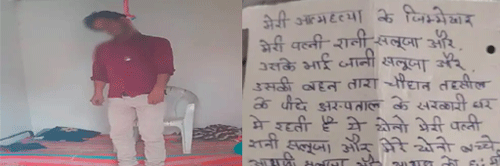 मेरी आत्महत्या के जिम्मेदार
मेरी पत्नी रानी सलूजा और
उसके भाई जानी सलूजा और
उसकी बहन तारा चौहान तहसील
के पीछे अस्पताल के सरकारी घर
मे रहती है ये दोनो मेरी पत्नी
रानी सलूजा और मेरे दोनो बच्चे
सलूजा